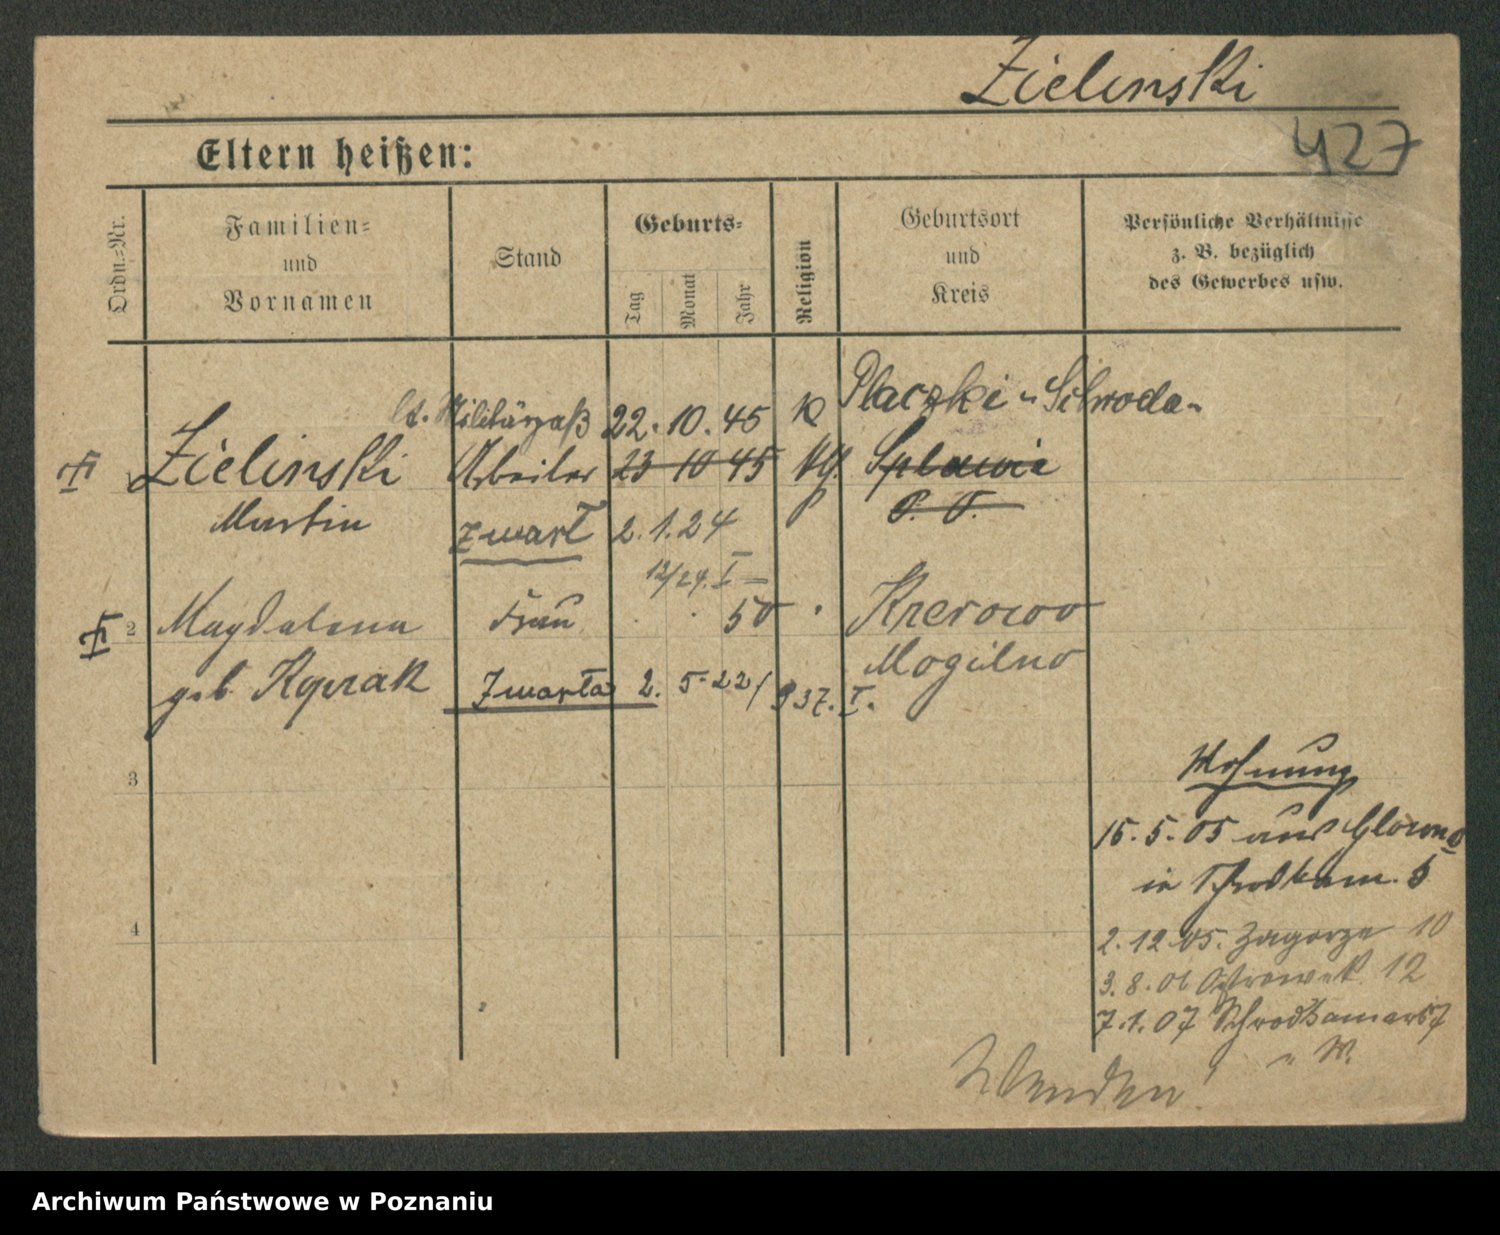 Zielinski
427
Eltern heißen:
Ordn.=Nr.
Familien= und Vornamen
Stand
Geburts=
Tag
Monat
Jahr
Religion
Geburtsort und Kreis
Persönliche Verhältnisse z. B. bezüglich des Gewerbes usw.
lt. Militärpaß 22. 10. 45 K Placzki - Schroda -
Zielinski Arbeiter 23 10 45 kth. Splawie
Martin zmarł 2. 1. 24 P. O.
12/24. I
2 Magdalena Frau 50 Krerowo
geb. Zmarła 2. 5. 22/ 937. I. Mogilno
3
Wohnung
15. 5. 05 aus Glowno
in Schrodkam. 5
4
2. 12. 05. Zagorze 10
3. 8. 06 Ostrowek 12
7. 1. 07 Schrodkamarkt 7
Wenden!
Archiwum Państwowe w Poznaniu